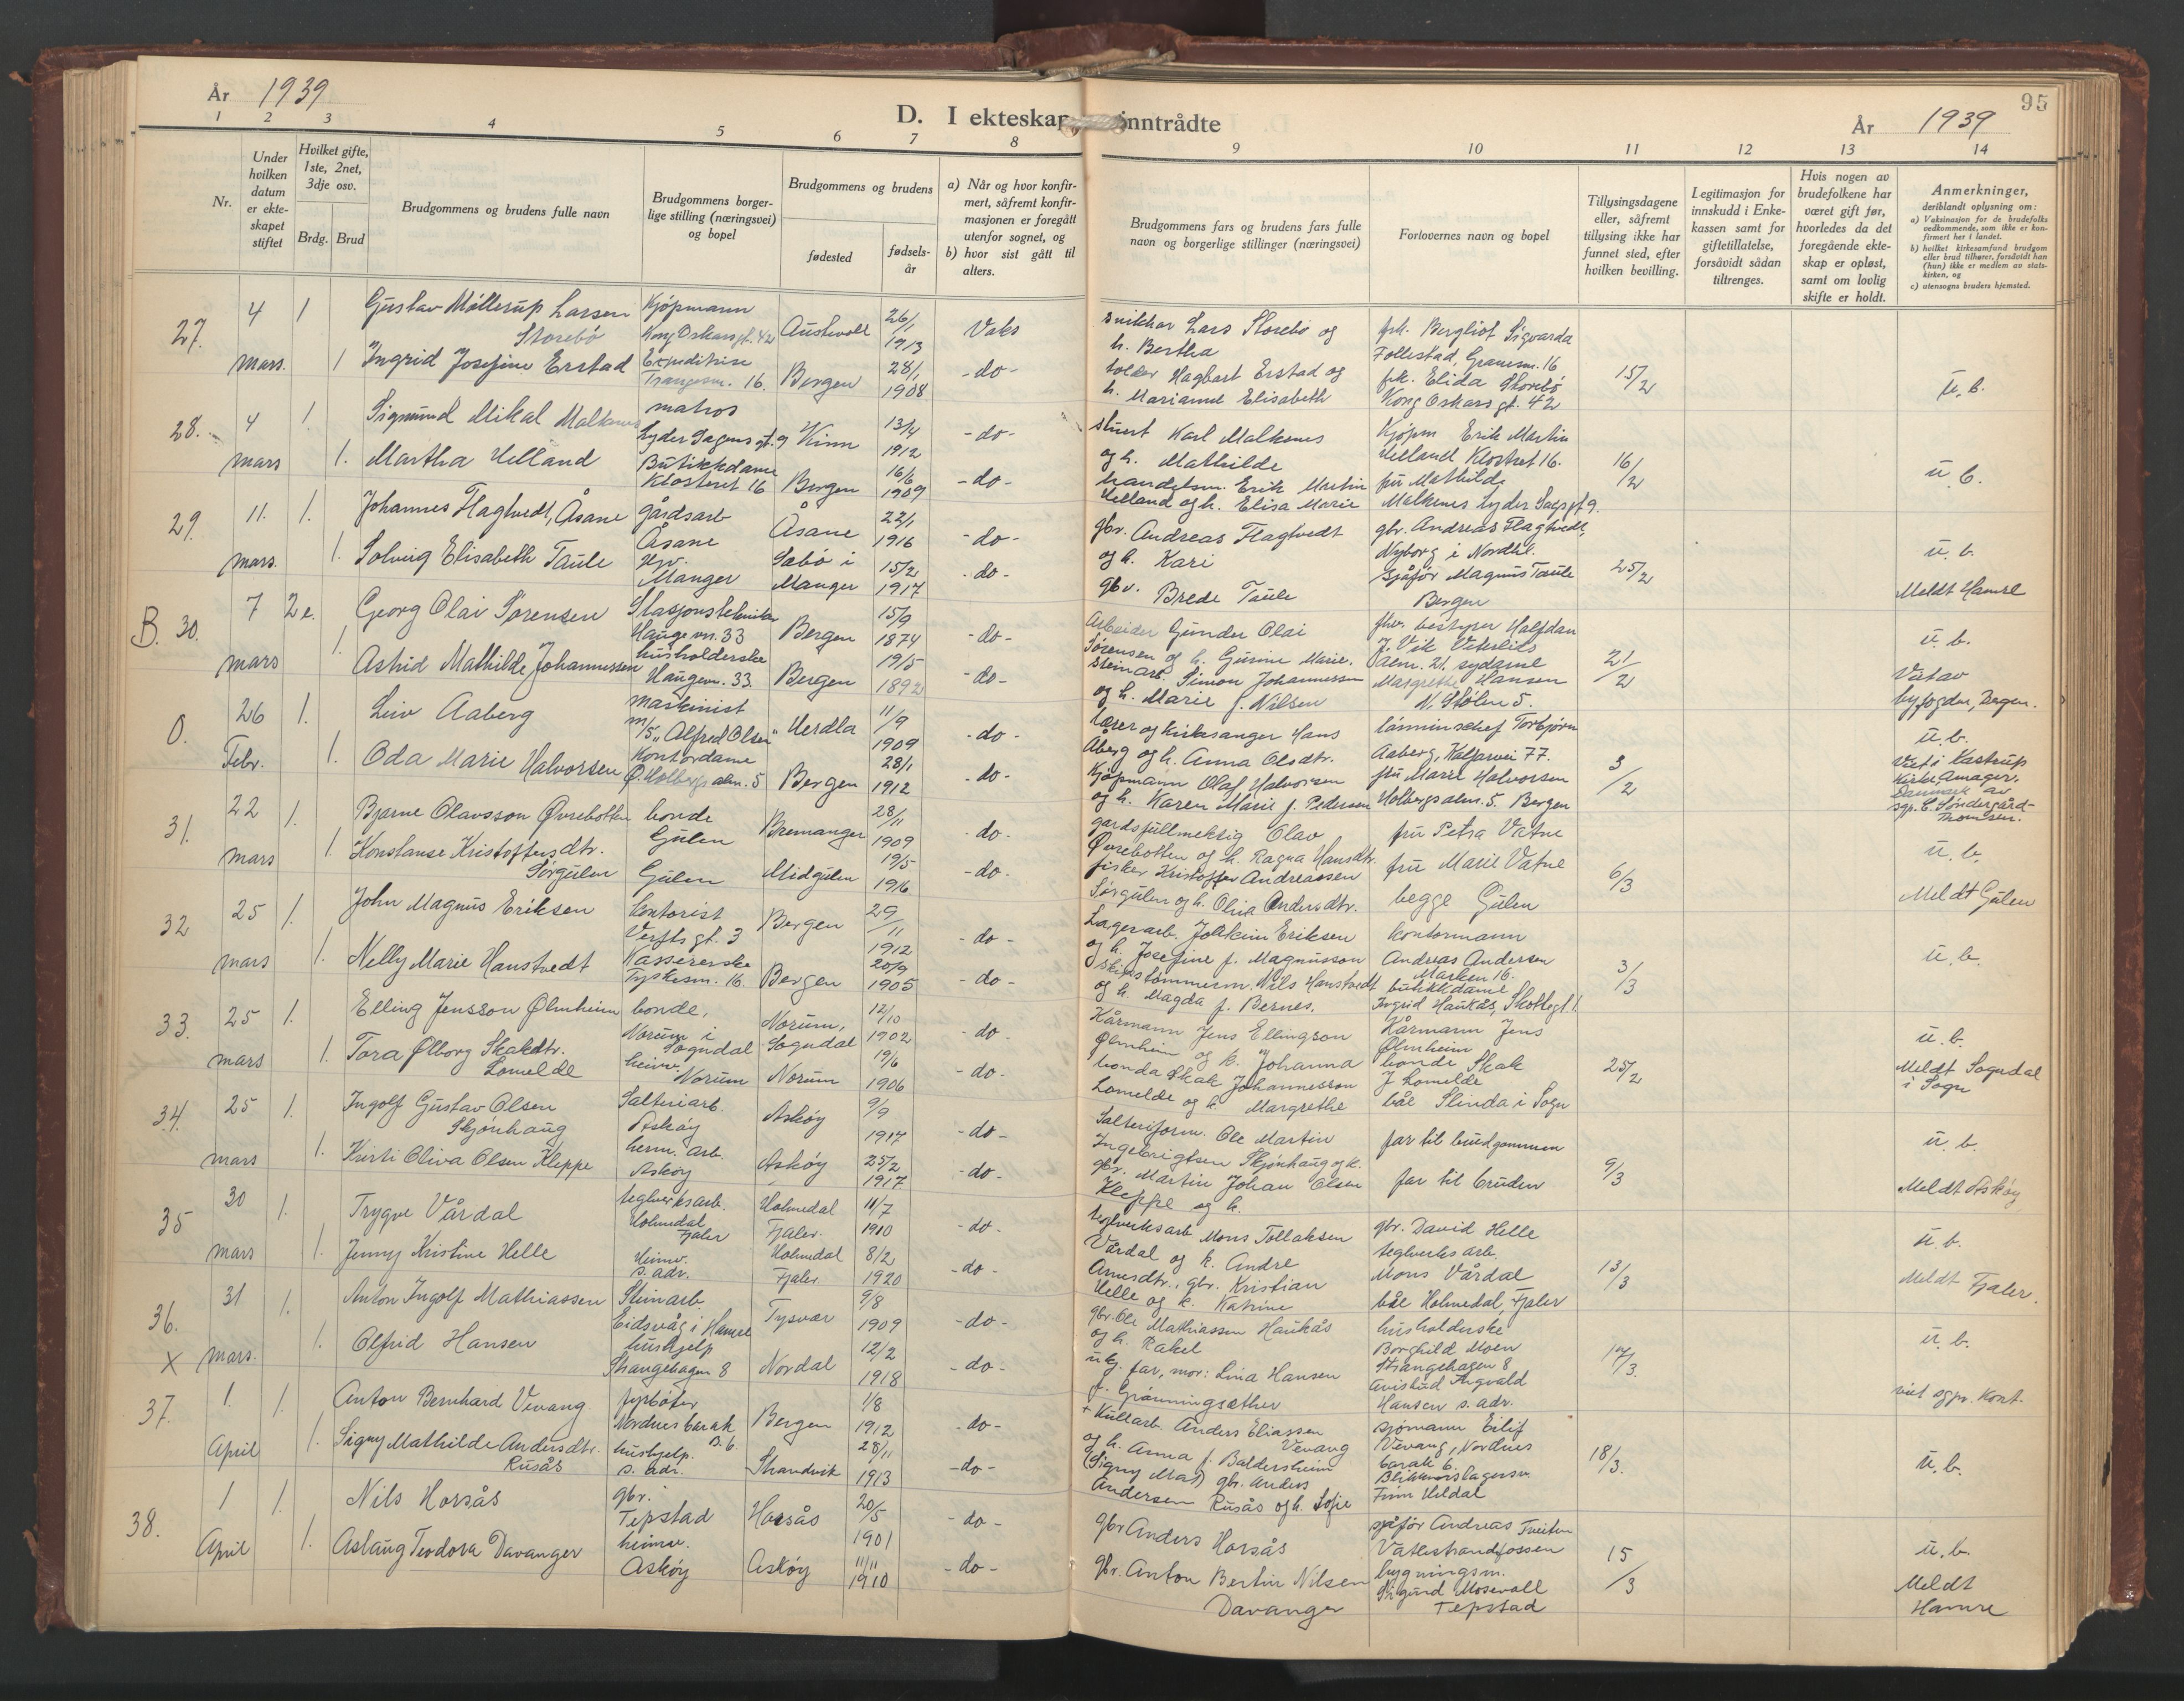 År 1939
D. I ekteskap inntrådte
År 1939
95
1 2 3 4 5 6 7 8 9 10 11 12 13 14
Nr.
Under hvilken datum er ekteskapet stiftet
Hvilket gifte, 1ste, 2net, 3dje osv.
Brdg. Brud
Brudgommens og brudens fulle navn
Brudgommens borgerlige stilling (næringsvei) og bopel
Brudgommens og brudens
fødested
fødselsår
a) Når og hvor konfirmert, såfremt konfirmasjonen er foregått utenfor sognet, og
b) hvor sist gått til alters.
Brudgommens fars og brudens fars fulle navn og borgerlige stillinger (næringsvei)
Forlovernes navn og bopel
Tillysingsdagene eller, såfremt tillysing ikke har funnet sted, efter hvilken bevilling.
Legitimasjon for innskudd i Enkekassen samt for giftetillatelse, forsåvidt sådan tiltrenges.
Hvis nogen av brudefolkene har været gift før, hvorledes da det foregående ekteskap er opløst, samt om lovlig skifte er holdt.
Anmerkninger, deriblandt oplysning om:
a) Vaksinasjon for de brudefolks vedkommende, som ikke er konfirmert her i landet.
b) hvilket kirkesamfund brudgom eller brud tilhører, forsåvidt han (hun) ikke er medlem av statskirken, og
c) utensogns bruders hjemsted.
27. 4 mars. 1
Gustav Møllerup Larsen Storebø
Kjøpmann Kong Oskarsgt. 42
Austevoll 26/1 1913 Vaks
snikker Lars Storebø og h. Bertha
frk. Bergliot Sigvarda Follestad,
1 Ingrid Josefine Erstad
Bergen 28/1 1908 -do-
toldbr Hagbart Erstad og h. Marianne Elisabeth
frk. Elida Storebø Kong Oskarsgt. 42
15/2
u. b.
28. 4 mars 1.
Sigmund Mikal Malkenes
matros Lyder Sagens gt. 9
Kinn 13/4 1912 -do-
stuert Karl Malkenes og h. Mathilde
Kjøpm Erik Martin Helland Klostret 16.
1. Martha Helland
Butikkdame Klosteret 16
Bergen 16/6 1909 -do-
handelsm. Erik Martin Helland og h. Elisa Marie
fru Mathilde Malkenes Lyder Sagsgt. 9.
16/2
u. b.
29. 11. mars. 1.
Johannes Flagtvedt, Åsane
gårdsarb Åsane
Åsane 22/1 1916 -do-
gbr. Andreas Flagtvedt og h. Kari
gbr. Andreas Flagtvedt, Nyborg i Nordhl.
1. Solveig Elisabeth Taule
Manger
Sabø i Manger 15/2 1917 -do-
gbr. Brede Taule
sjåfør Magnus Taule Bergen
25/2
u. b.
Meldt Hamre
B. 30. 7 mars 2e.
Georg Olai Sørensen
Hauge vn. 33
Bergen 15/9 1874 -do-
Arbeider Gunder Olai Sørensen og h. Gurine Marie.
fhv. bestyrer Halfdan J. Vik
1. Astrid Mathilde Johannessen
husholderske Haugevn. 33.
Bergen 19/5 1892 -do-
steinarb. Simon Johannessen og h. Marie f. Nilsen
Margrethe Hansen N. Stølen 5.
21/2
u. b.
Viet av byfogden, Bergen.
0. 26 Febr. 1.
Leiv Aaberg
maskinist m/s "Alfred Olsen"
Herdla 11/9 1909 -do-
lærer og kirkesanger Hans Åberg og h. Anna Olsdtr.
Torbjørn Aaberg, Kalfarvei 77.
1. Oda Marie Halvorsen
Kontordame Ø. Holbergs alm. 5
Bergen 28/1 1912 -do-
Kjøpmann Olaf Halvorsen og h. Karen Marie f. Pedersen
fru Marie Halvorsen Holbergsalm. 5. Bergen
3/2
u. b.
Viet i Kastrup Kirke Amager, Danmark av sgp. C. Søndergård-Thomsen.
31. 22 mars 1.
Bjarne Olavsson Øvrebotten
bonde Gulen
Bremanger 28/11 1909 -do-
gardsfullmektig Olav Øvrebotten og h. Ragna Hansdtr.
fru Petra Vatne
1. Konstanse Kristoffersdtr. Sørgulen
Gulen
Midgulen 19/5 1916 -do-
fisker Kristoffer Andreassen Sørgulen og h. Oliva Andersdtr.
fru Marie Vatne begge Gulen
6/3
u. b.
Meldt Gulen
32 25 mars 1.
John Magnus Eriksen
kontorist Verftsgt. 3
Bergen 29/11 1912 -do-
Lagerarb. Joakim Eriksen og h. Josefine f. Magnusson
kontormann Andreas Andersen Marken 16.
1. Nelly Marie Hanstvedt
Kassererske Tyskesm. 16.
Bergen 20/9 1905 -do-
skipstømmerm. Nils Hanstvedt og h. Magda f. Bernes.
butikkdame Ingrid Haukås, Skottegt. 1.
3/3
u. b.
33. 25 mars 1.
Elling Jensson Ølmheim
bonde, Norum i Sogndal
Norum, Sogndal 12/10 1902 -do-
Kårmann Jens Ellingson Ølmheim og k. Johanna
Kårmann Jens Ølmheim
1. Tora Ølborg Skakdtr. Lomelde
heimv. Norum
Norum 19/6 1906 -do-
bonda Skak Johannesson Lomelde og k. Margrethe
bonde Skak J Lomelde båe Slinda i Sogn
25/2
u. b.
Meldt Sogndal i Sogn
34. 25 mars 1.
Ingolf Gustav Olsen Skjønhaug
Salteriarb. Askøy
Askøy 9/9 1917 -do-
Salteriform. Ole Martin Ingebrigtsen Skjønhaug og k.
far til brudgommen
1. Kirsti Oliva Olsen Kleppe
herm. arb. Askøy
Askøy 25/2 1917 -do-
gbr. Martin Johan Olsen Kleppe og h.
far til bruden
9/3
u. b.
Meldt Askøy
35 30 mars 1.
Trygve Vårdal
teglverksarb. Holmedal Fjaler
Holmedal Fjaler. 11/7 1910 -do-
teglverksarb Mons Tollaksen Vårdal og k. Andre Arnesdtr.,
gbr. David Helle
1. Jenny Kristine Helle
Heimv. s. adr.
Holmedal Fjaler 8/2 1920 -do-
gbr. Kristian Helle og k. Katrine
teglverks arb. Mons Vårdal båe Holmedal, Fjaler
13/3
u. b.
Meldt Fjaler.
36. X 31 mars. 1.
Anton Ingolf Mathiassen
Steinarb. Eidsvåg i Hamre
Tysvær 9/8 1909 -do-
gbr. Ole Mathiassen Haukås og h. Rakel
husholderske Borghild Moen Strangehagen 8
1. Olfrid Hansen
hushjelp Strangehagen 8
Nordal 12/2 1918 -do-
ukj. far, mor: Lina Hansen f. Grønningsæther
avisbud Ingvald Hansen s. adr.
17/3.
u. b.
viet sgpr. kont.
37. 1. April 1.
Anton Bernhard Vevang.
fyrbøter Nordnes barak B. 6.
Bergen 1/8 1912 -do-
+ Kullarb. Anders Eliassen Vevang og h. Anna f. Baldersheim
sjømann Eilif Vevang, Nordnes barak 6.
1. Signy Mathilde Andersdtr. Rusås
hushjelp. s. adr.
Strandvik 28/11 1913 -do-
(Signy Mat) gbr. Anders Andersen Rusås og h. Sofie
Blikkenslagersv. Finn Heldal
18/3.
u. b.
38. 1 April 1.
Nils Horsås
gbr. Tepstad
Horsås 20/5 1901 -do-
gbr Anders Horsås
sjåfør Andreas Tveiten Vatlestrandfossen
1. Aslaug Teodora Davanger
heimv. Askøy
Askøy 11/11 1910 -do-
gbr. Anton Bertin Nilsen Davanger
bygningsm. Sigurd Mosevoll Tepstad
15/3
u. b.
Meldt Hamre